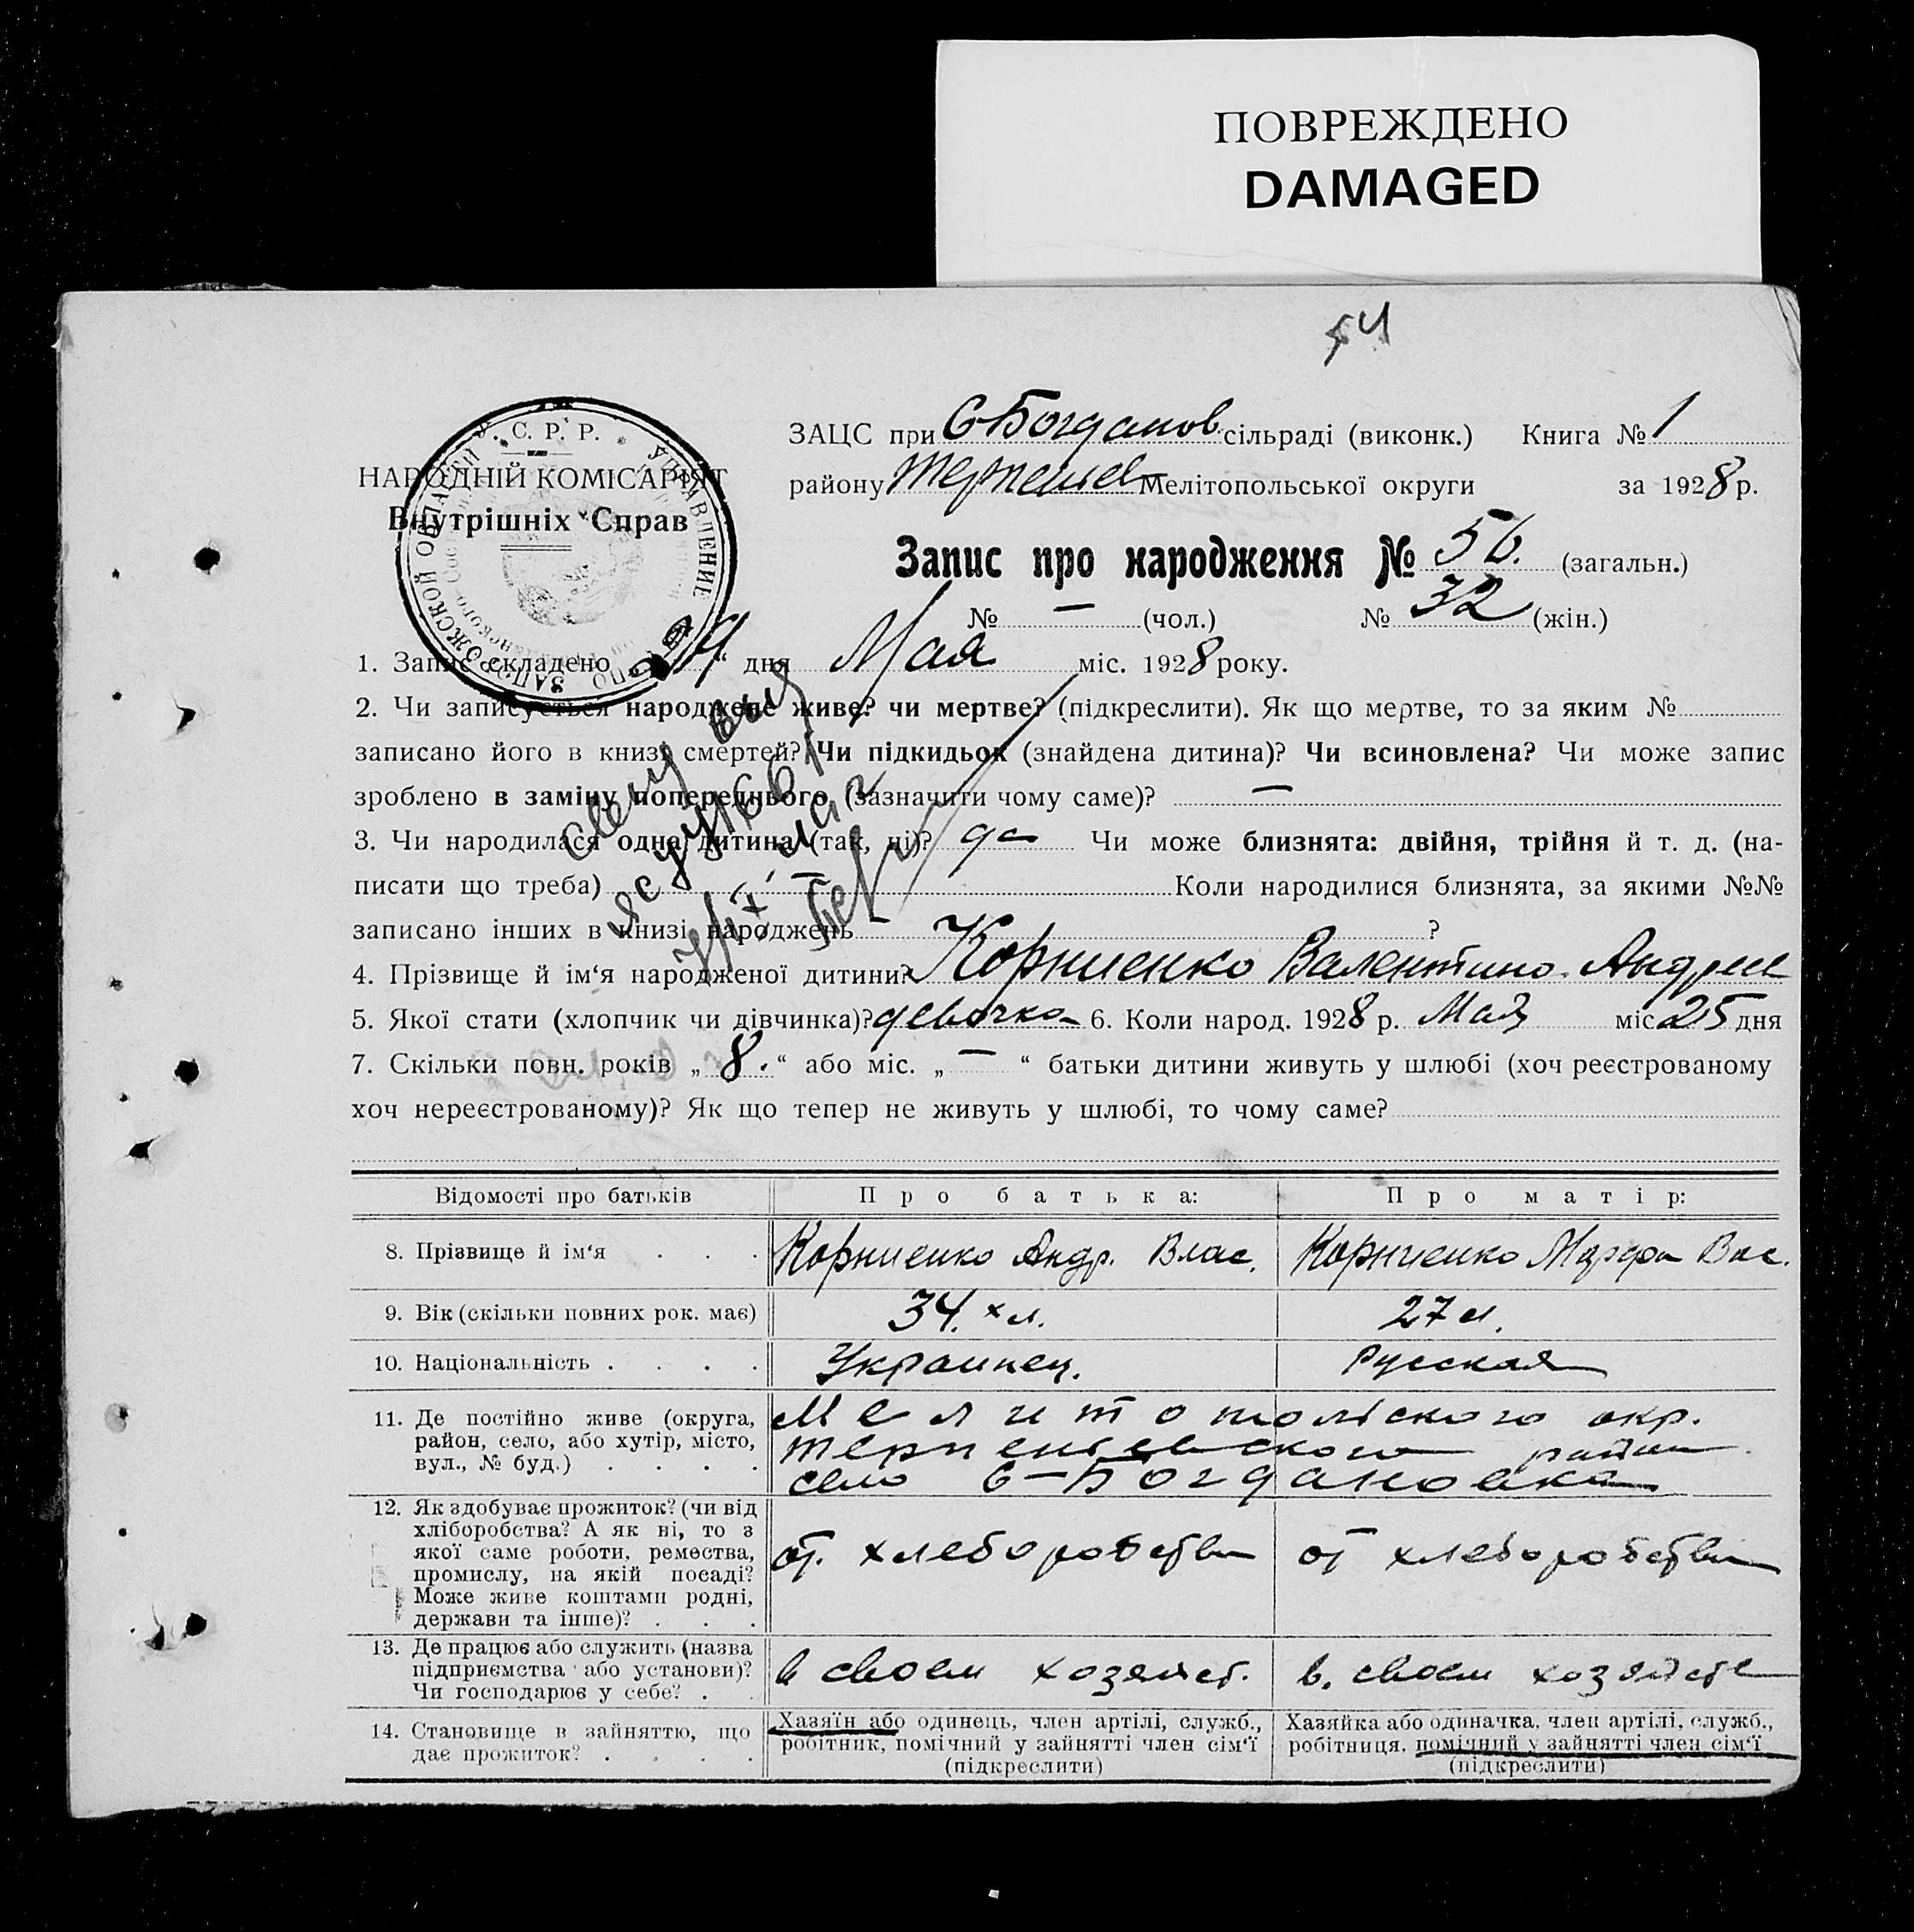 ПОВРЕЖДЕНО
DAMAGED
54
У. С. Р. Р.
УПРАВЛЕНИЕ ЗАПОРОЖСКОЙ
НАРОДНІЙ КОМІСАРІЯТ
Внутрішніх Справ
ЗАЦС при С-Богданов. сільраді (виконк.) Книга № 1
району Терпеньев Мелітопольської округи за 1928 р.
Запис про народження № 56. (загальн.)
№ — (чол.) № 32 (жін.)
1. Запис складено " " дня Мая міс. 1928 року.
2. Чи записується народжене живе? чи мертве? (підкреслити). Як що мертве, то за яким №
записано його в книзі смертей? Чи підкидьок (знайдена дитина)? Чи всиновлена? Чи може запис
зроблено в заміну попереднього (зазначити чому саме)? —
3. Чи народилася одна дитина (так, ні)? да Чи може близнята: двійня, трійня й т. д. (на-
писати що треба) — Коли народилися близнята, за якими №№
записано інших в книзі народжень — ?
4. Прізвище й ім'я народженої дитини? Корниенко Валентина Андрее
5. Якої стати (хлопчик чи дівчинка)? девочка 6. Коли народ. 1928 р. Мая міс 25 дня
7. Скільки повн. років „ 8. “ або міс. „ — “ батьки дитини живуть у шлюбі (хоч реєстрованому
хоч нереєстрованому)? Як що тепер не живуть у шлюбі, то чому саме?
Відомості про батьків Про батька: Про матір:
8. Прізвище й ім'я . . . Корниенко Андр. Влас. Корниенко Марфа Вас.
9. Вік (скільки повних рок. має) 34.х л. 27 л.
10. Національність . . . . Украинец. Русская
11. Де постійно живе (округа, Мелитопольского окр.
район, село, або хутір, місто, Терпеньевского район
вул., № буд.) . . . . село С-Богдановка
12. Як здобуває прожиток? (чи від
хліборобства? А як ні, то з
якої саме роботи, ремества, от. хлеборобства от хлеборобства
промислу, на якій посаді?
Може живе коштами родні,
держави та інше)? . . .
13. Де працює або служить (назва
підприємства або установи)? в своем хозяйст. в. своем хозяйстве
Чи господарює у себе? .
14. Становище в зайняттю, що Хазяїн або одинець, член артілі, служб., Хазяйка або одиначка, член артілі, служб.,
дає прожиток? . . . . робітник, помічний у зайнятті член сім'ї робітниця, помічний у зайнятті член сім'ї
(підкреслити) (підкреслити)